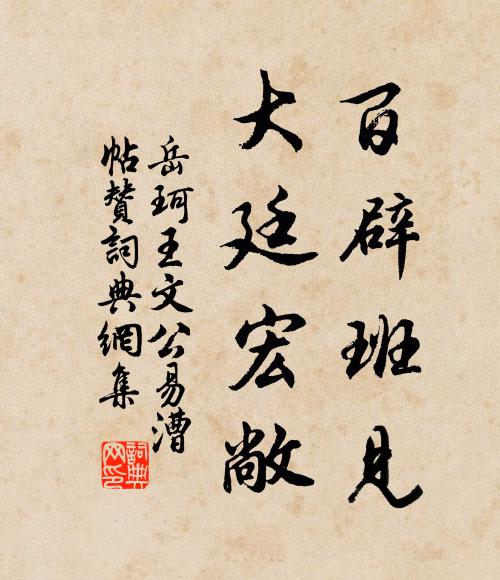 百辟班見
大廷宏敞
岳珂王文公易漕
帖贊詞典網集
詞典網印